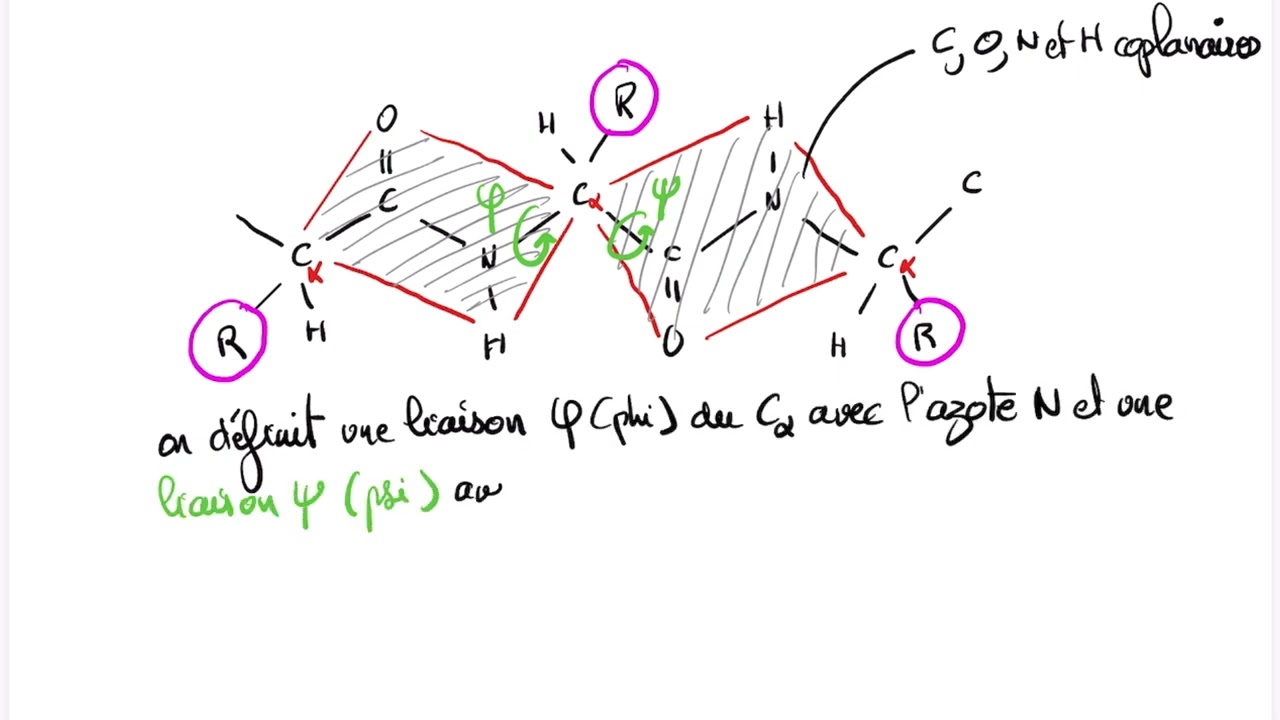 C, O, N et H coplanaires
O
H
R
H
C
C
φ
Cα
ψ
N
Cα
N
C
Cα
R
H
H
O
H
R
on définit une liaison φ (phi) du Cα avec l'azote N et une
liaison ψ (psi) av